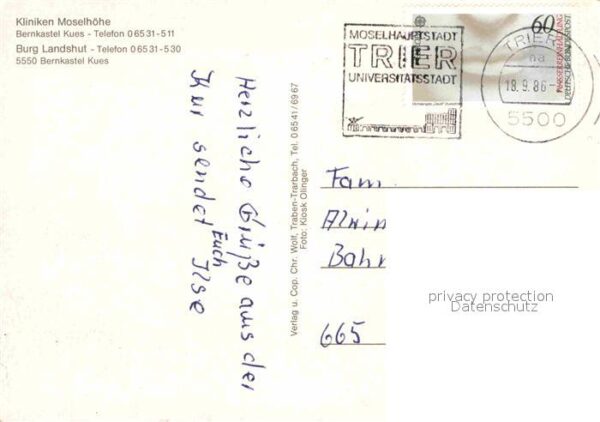 Kliniken Moselhöhe
Bernkastel Kues - Telefon 06531-511
Burg Landshut - Telefon 06531-530
5550 Bernkastel Kues
Herzliche Grüße aus der
Kur sendet Euch Ilse
Verlag u. Cop. Chr. Wolf, Traben-Trarbach, Tel. 06541/6967
Foto: Kiosk Olinger
MOSELHAUPTSTADT
TRIER
UNIVERSITÄTSSTADT
60
DEUTSCHE BUNDESPOST
TRIER
na
18.9.86
5500
Fam.
Alwin
Bahn
665
privacy protection
Datenschutz